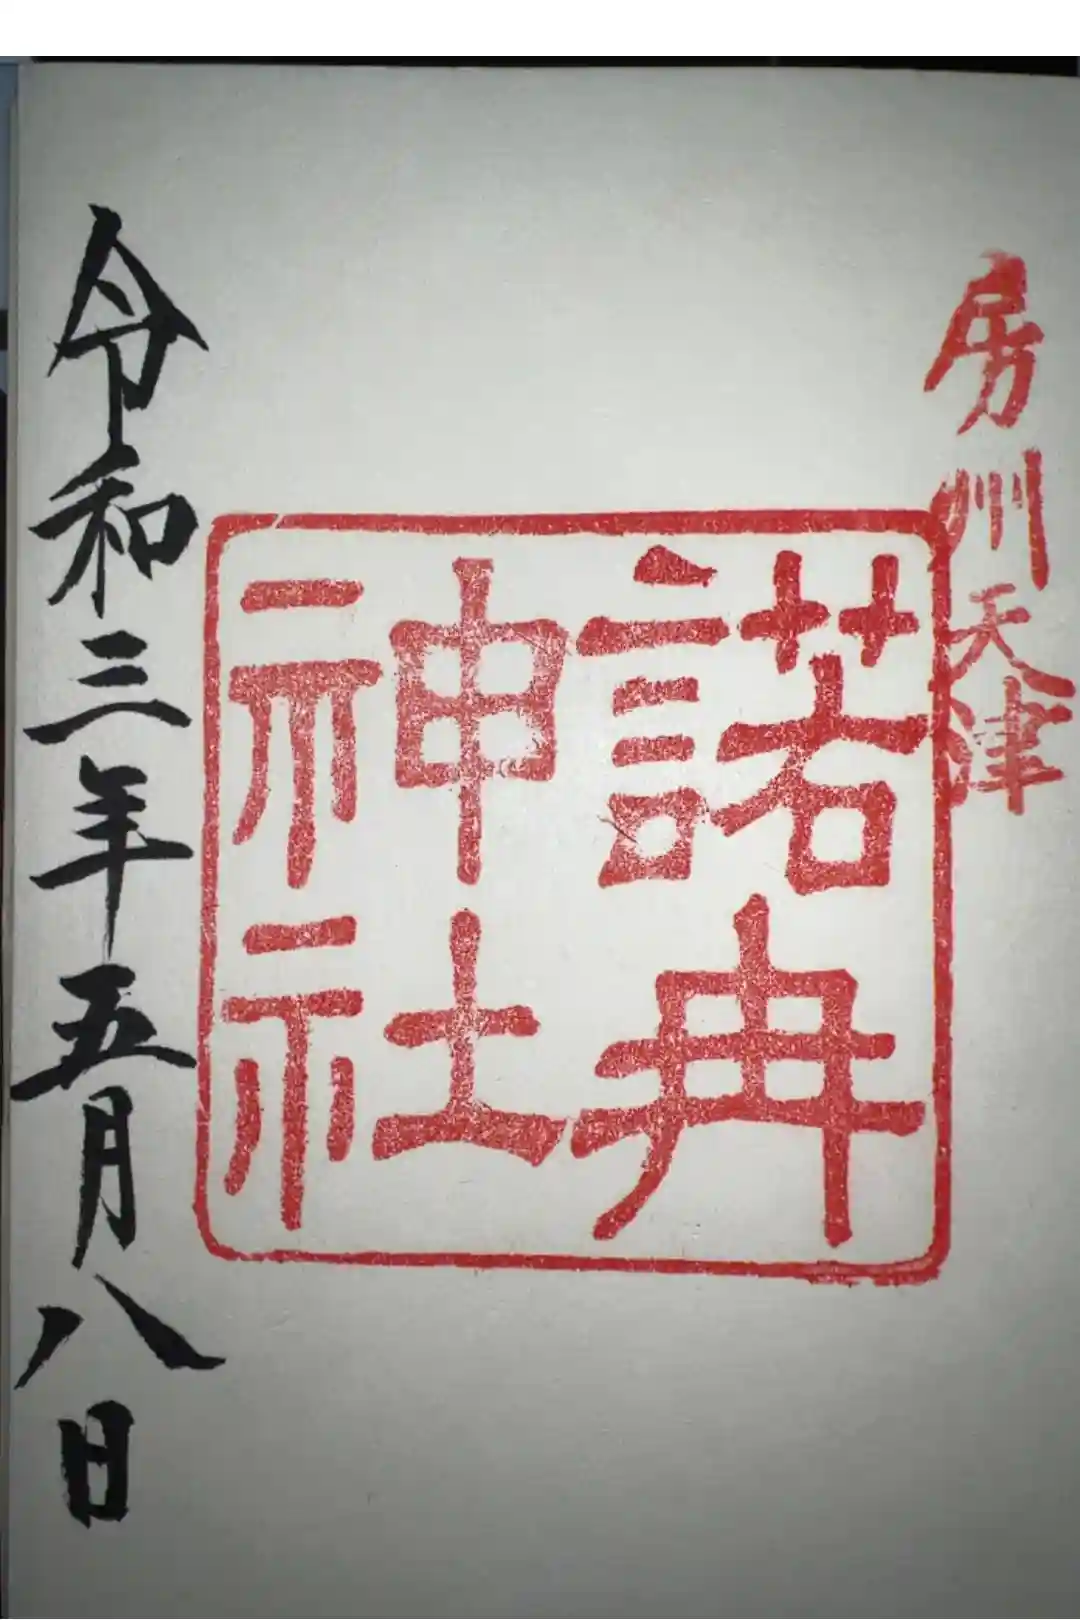 房州天津
諾冉
神社
令和三年五月八日